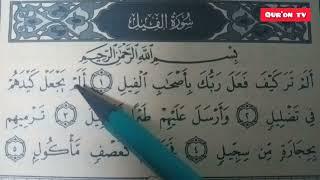 Qur'on TV
سُورَةُ الفِيلِ
بِسْمِ اللَّهِ الرَّحْمَٰنِ الرَّحِيمِ
أَلَمْ تَرَ كَيْفَ فَعَلَ رَبُّكَ بِأَصْحَٰبِ ٱلْفِيلِ ١ أَلَمْ يَجْعَلْ كَيْدَهُمْ
فِى تَضْلِيلٍ ٢ وَأَرْسَلَ عَلَيْهِمْ ٣ تَرْمِيهِم
بِحِجَارَةٍ مِّن سِجِّيلٍ ٤ كَعَصْفٍ مَّأْكُولٍ ٥